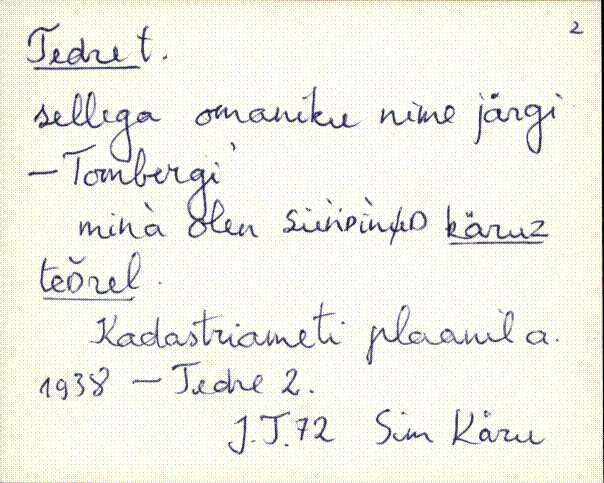 2
Tedre t.
sellega omaniku nime järgi
– Tombergi'
minà olen süǹDìnuD käruz
teDrel.
Kadastriameti plaanil a.
1938 – Tedre 2.
J.T.72 Sim Käru